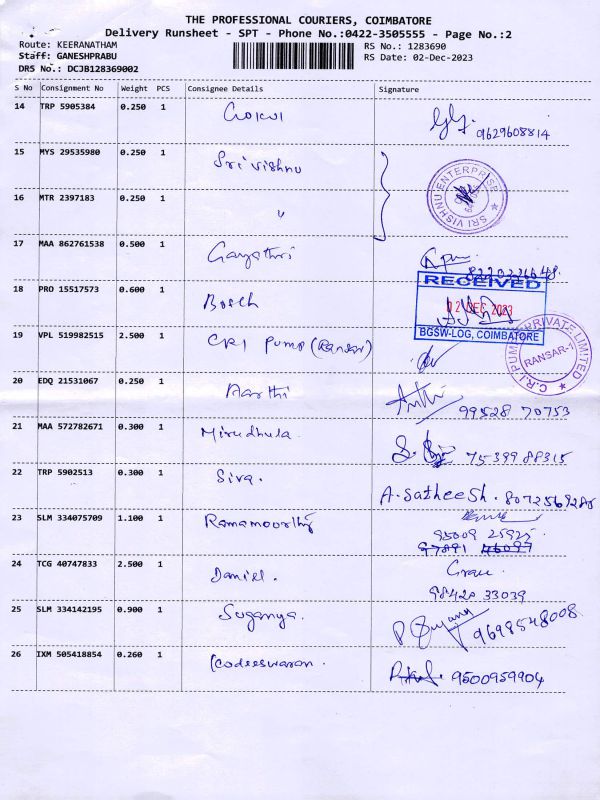 THE PROFESSIONAL COURIERS, COIMBATORE
Delivery Runsheet - SPT - Phone No.:0422-3505555 - Page No.:2
Route: KEERANATHAM
RS No.: 1283690
Staff: GANESHPRABU
RS Date: 02-Dec-2023
DRS No.: DCJB128369002
S No Consignment No Weight PCS Consignee Details Signature
14 TRP 5905384 0.250 1 Gokul
9629608814
15 MYS 29535980 0.250 1 Sri Vishnu
SRI VISHNU ENTERPRISE
16 MTR 2397183 0.250 1 "
17 MAA 862761538 0.500 1 Gayathri
18 PRO 15517573 0.600 1 Bosch
RECEIVED
02 DEC 2023
BGSW-LOG, COIMBATORE
19 VPL 519982515 2.500 1 CRI Pump (Ransar)
C.R.I. PUMPS PRIVATE LIMITED
RANSAR-1
20 EDQ 21531067 0.250 1 Aarthi
99528 70753
21 MAA 572782671 0.300 1 Mirudhula
75399 88315
22 TRP 5902513 0.300 1 Siva.
A. Satheesh.
23 SLM 334075709 1.100 1 Ramamoorthy
95009
24 TCG 40747833 2.500 1 Daniel.
98420 33039
25 SLM 334142195 0.900 1 Suganya.
9698548008
26 IXM 505418854 0.260 1
9500959904